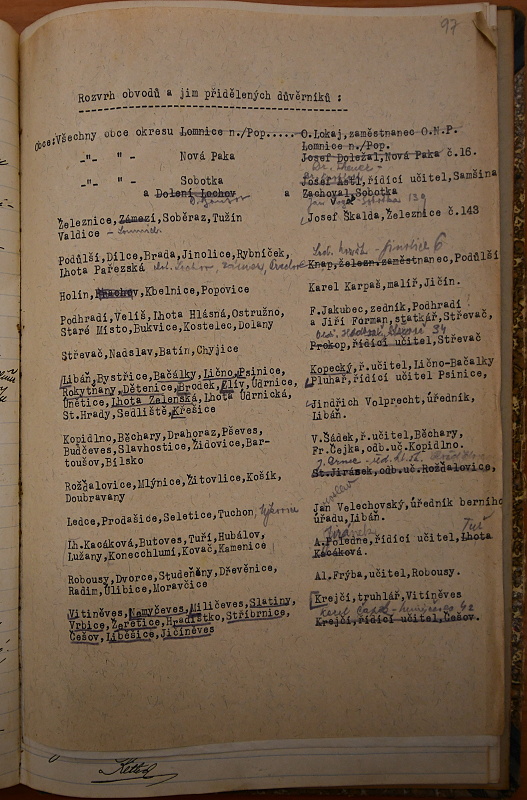 97
Rozvrh obvodů a jim přidělených důvěrníků :
Obce:Všechny obce okresu Lomnice n./Pop..... O.Lokaj,zaměstnanec O.N.P.
Lomnice n./Pop.
-"- "- Nová Paka Josef Doležal,Nová Paka č.16.
-"- "- Sobotka Josef Astl,řídící učitel,Samšina
a Dolení Lochov a Zachoval,Sobotka
Železnice,Zámezí,Soběraz,Tužín Josef Škalda,Železnice č.143
Valdice
Podůlší,Dílce,Brada,Jinolice,Rybníček, Jinolice 6
Lhota Pařezská Knap,železn.zaměstnanec,Podůlší
Holín,Prachov,Kbelnice,Popovice Karel Karpaš,malíř,Jičín.
Podhradí,Veliš,Lhota Hlásná,Ostružno, F.Jakubec,zedník,Podhradí
Staré Místo,Bukvice,Kostelec,Dolany a Jiří Forman,statkář,Střevač,
Střevač,Nadslav,Batín,Chyjice Prokop,řídící učitel,Střevač
Libáň,Bystřice,Bačálky,Lično,Psinice, Kopecký,ř.učitel,Lično-Bačalky
Rokytňany,Dětenice,Brodek,Glív,Údrnice, Pluhař,řídící učitel Psinice,
Únětice,Lhota Zelenská,Lhota Údrnická, Jindřich Volprecht,úředník,
St.Hrady,Sedliště,Křešice Libáň.
Kopidlno,Běchary,Drahoraz,Pševes, V.Šádek,ř.učitel,Běchary,
Budčeves,Slavhostice,Židovice,Bar- Fr.Čejka,odb.uč.Kopidlno.
toušov,Bílsko
Rožďalovice,Mlýnice,Žitovlice,Košík, St.Jirásek,odb.uč.Rožďalovice,
Doubravany
Ledce,Prodašice,Seletice,Tuchom, Jan Velechovský,úředník berního
úřadu,Libáň.
Lh.Kacáková,Butoves,Tuří,Hubálov, A.Poledne,řídící učitel,Lhota
Lužany,Konecchlumí,Kovač,Kamenice Kacáková.
Robousy,Dvorce,Studeňny,Dřevěnice, Al.Frýba,učitel,Robousy.
Radim,Úlibice,Moravčice
Vitiněves,Nemyčeves,Miličeves,Slatiny, Krejčí,truhlář,Vitiněves
Vrbice,Žeretice,Hradišťko,Stříbrnice, Krejčí,řídící učitel,Češov.
Češov,Liběšice,Jičíněves